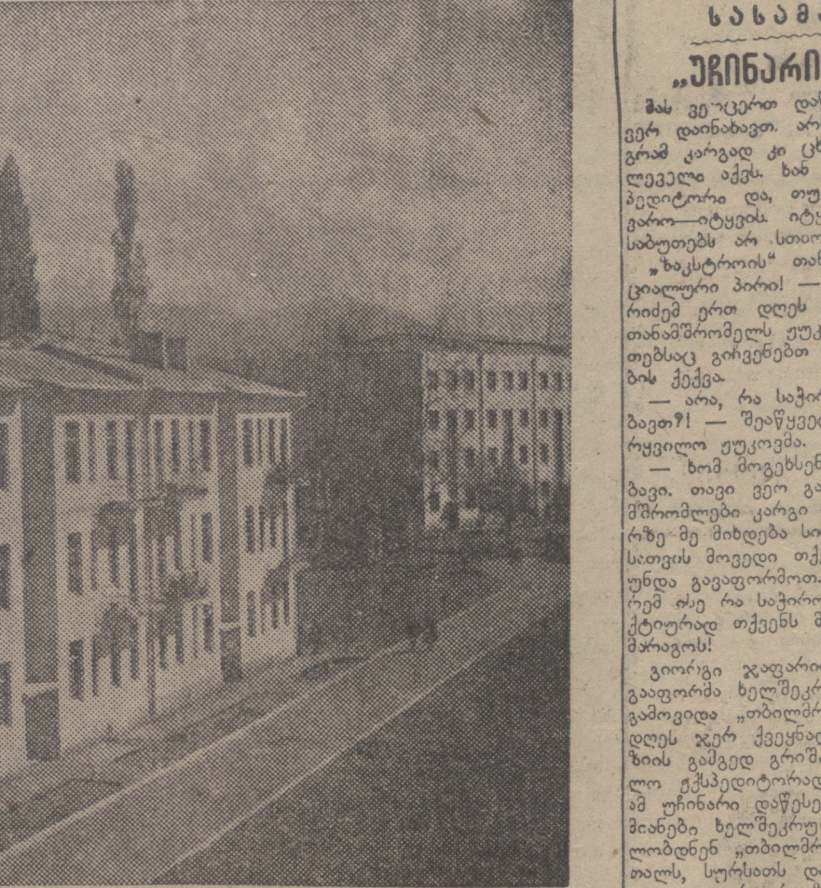 სასამა
„უჩინარი
მას ვერცერთ დაწ
ვერ დაინახავთ. არ
გრამ კარგად კი ცხ
ლეველი აქვს. ხან
პედიტორი და, თუ
ვარო—იტყვის. იტყ
საბუთებს არ სთხო
„ზაკსტროის“ თან
ციალური პირი! —
რიძემ ერთ დღეს
თანამშრომელს ჟუკ
თებსაც გიჩვენებთ
ბის ქექვა.
— არა, რა საჭირ
ბავთ?! — შეაწყვე
რყვილო ჟუკოვმა.
— ხომ მოგეხსენ
ბავი. თავი ვერ გა
მშრომლები კარგი
რზე მე მიხდება სი
სათვის მოვედი თქ
უნდა გავაფორმოთ.
რემ ისე რა საჭირო
ქტიურად თქვენს მ
მარაგოს!
გიორგი ჯაფარი
გააფორმა ხელშეკრ
გამოვიდა „თბილმრ
დღეს ჯერ ქვეყნად
ზიის გამგედ გრიშა
ლო ექსპედიტორად
ამ უჩინარი დაწესე
მიანები ხელშეკრუ
ლობდნენ „თბილმრ
თალს, სურსათს და